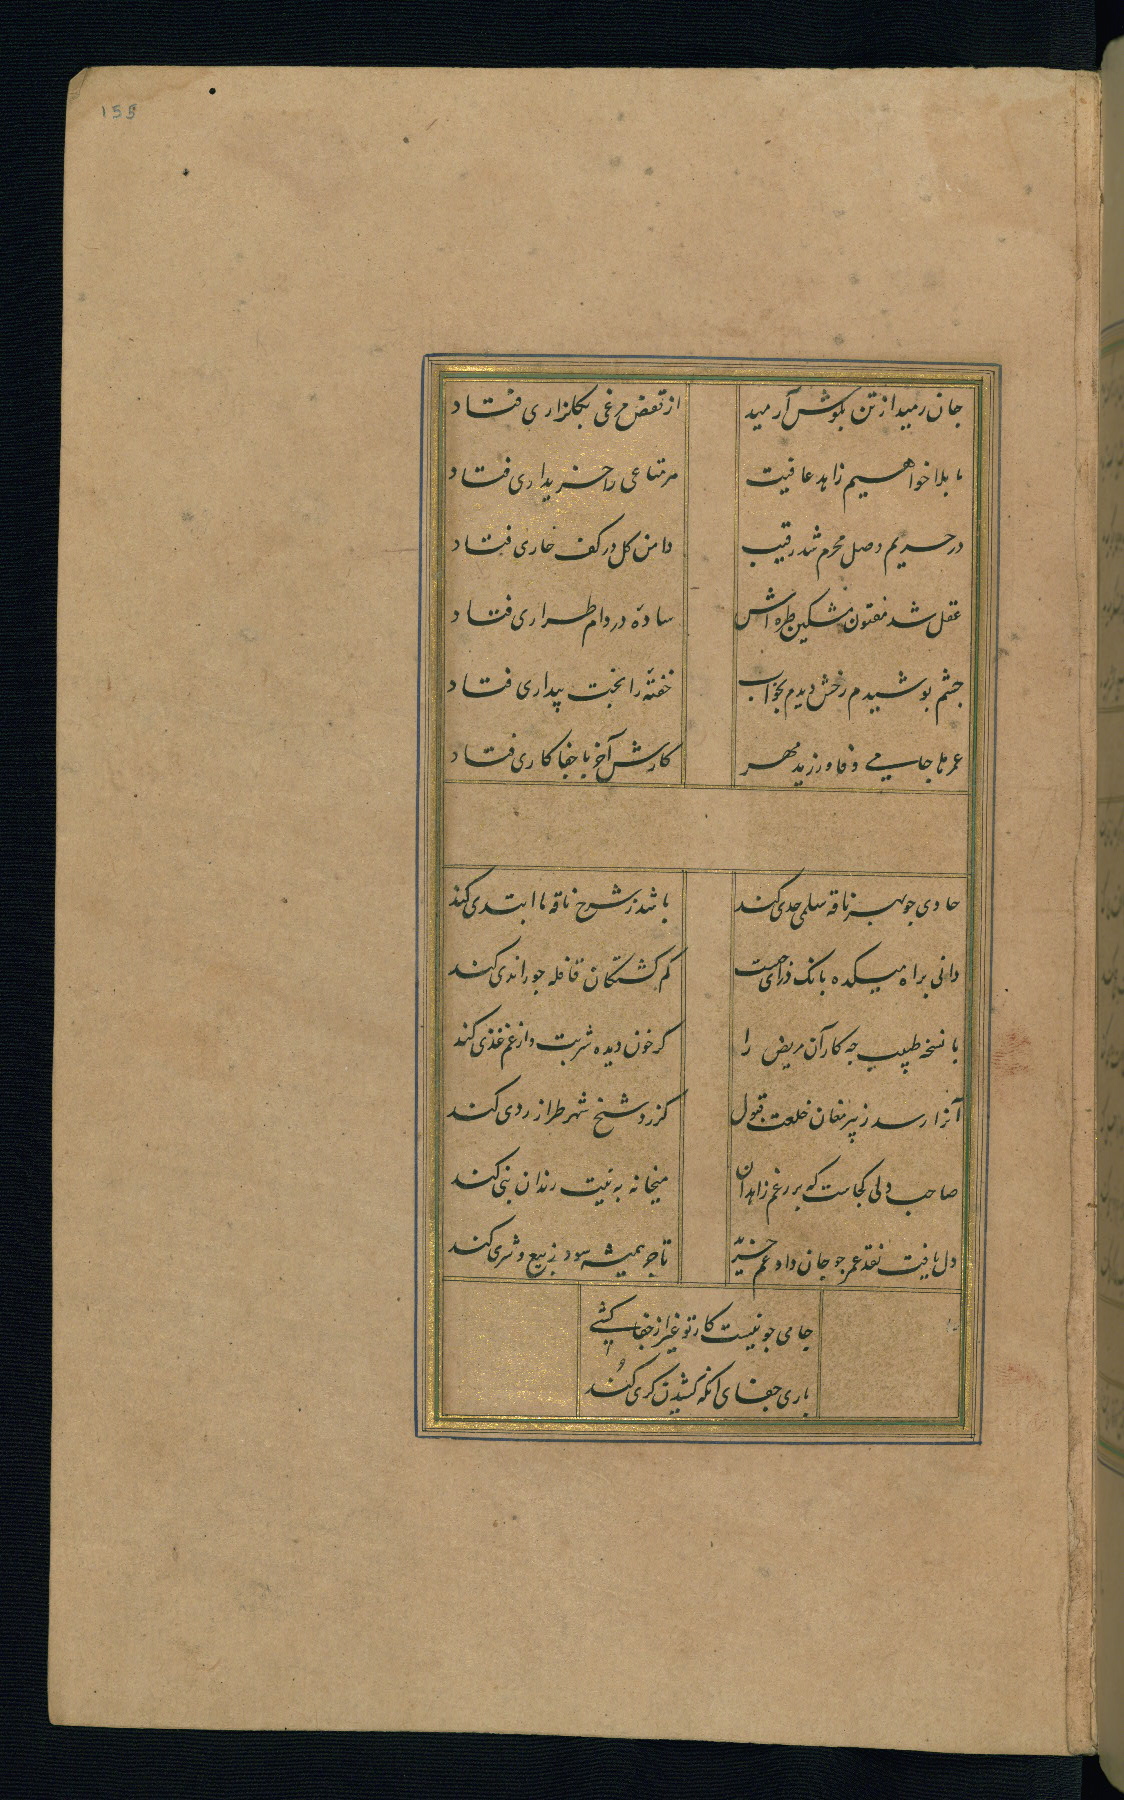 155
جان رمید از تن بکویش آرمید از قفس مرغی بگلزاری فتاد
ما بلا خواهیم زاهد عافیت هر متاعی را خریداری فتاد
در حریم وصل محرم شد رقیب دامن گل در کف خاری فتاد
عقل شد مفتون مشکین طره اش سادۀ در دام طراری فتاد
چشم پوشیدم رخش دیدم بخواب خفتۀ را بخت بیداری فتاد
عمرها جامی وفا ورزید مهر کارش آخر با جفاکاری فتاد
حادی چو بهر ناقه سلمی حدی کند باشد ز شرح ناقه ما ابتدی کند
دانی براه میکده بانگ درای چیست گم گشتگان قافله جو را ندی کند
با نسخه طبیب چه کار آن مریض را کز خون دیده شربت و از غم غذی کند
آنرا رسد ز پیر مغان خلعت قبول کز رد شیخ شهر طراز ردی کند
صاحب دلی کجاست که بر رغم زاهدان میخانه به نیت رندان بنی کند
دل یافت نقد عمر چو جان داد غم خرید تاجر همیشه سود ز بیع و شری کند
جامی چو نیست کار تو غیر از جفا کشی
باری جفای آنکه کشیدن کری کند